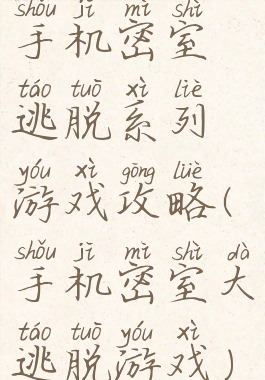 shǒu jī mì shì
手机密室
táo tuō xì liè
逃脱系列
yóu xì gōng lüè
游戏攻略(
shǒu jī mì shì dà
手机密室大
táo tuō yóu xì
逃脱游戏)